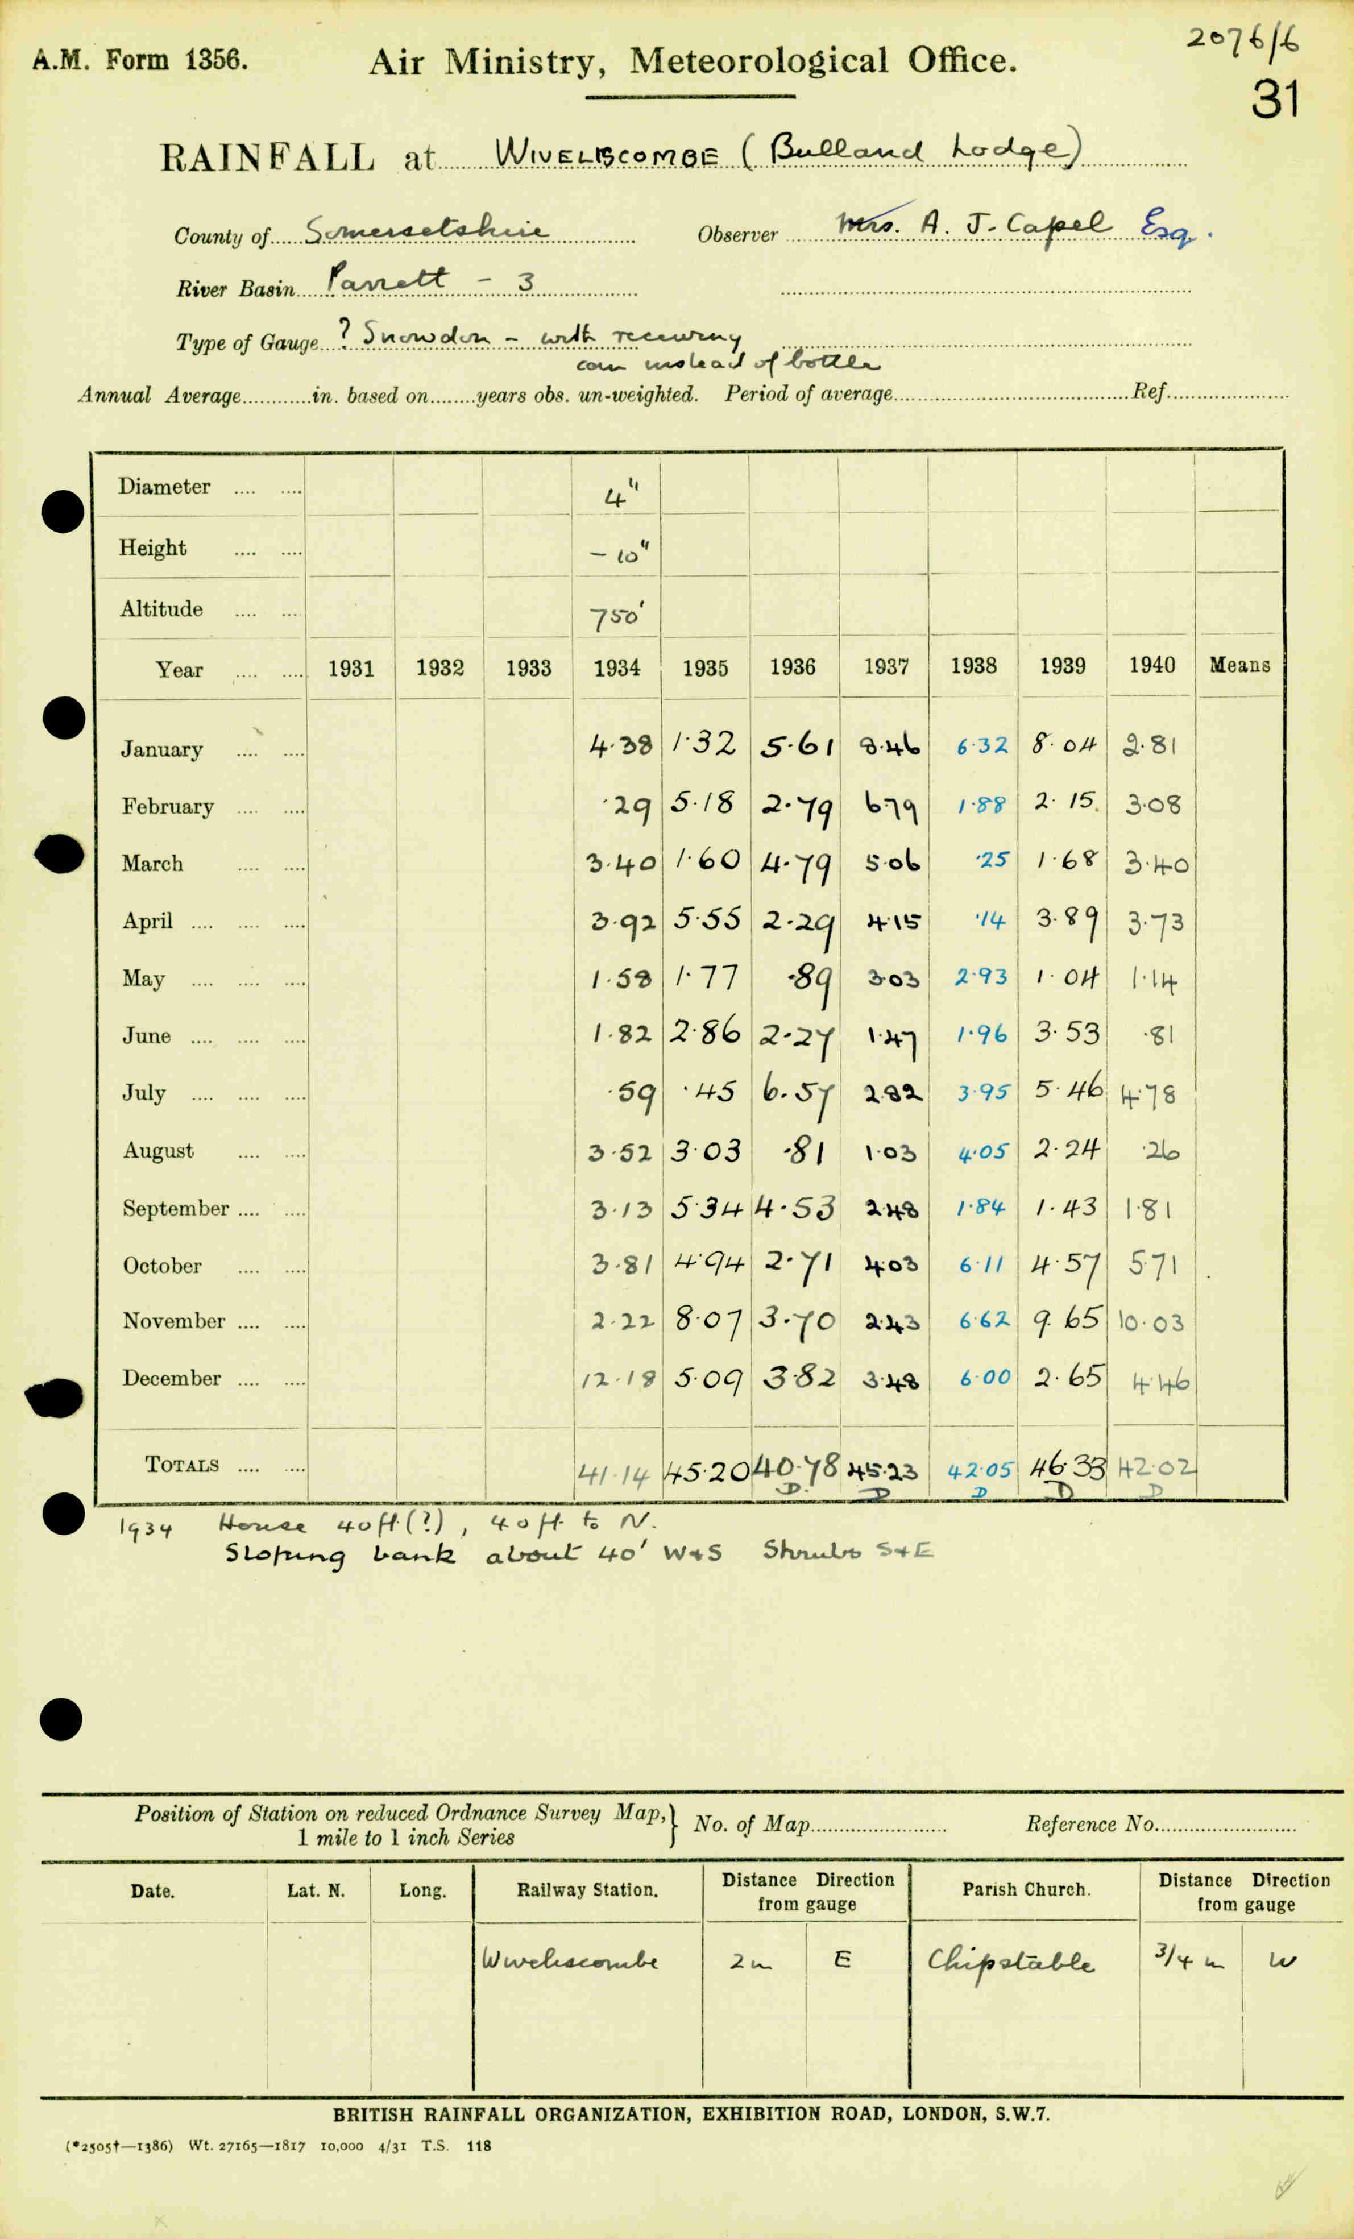 A.M. Form 1356.
Air Ministry, Meteorological Office.
2076/6
31
RAINFALL at WIVELISCOMBE (Bulland Lodge)
County of Somersetshire Observer Mrs. A. J. Capel Esq.
River Basin Parrett - 3
Type of Gauge ? Snowdon - with receiving
can instead of bottle
Annual Average in. based on years obs. un-weighted. Period of average Ref.
Diameter 4"
Height -10"
Altitude 750'
Year 1931 1932 1933 1934 1935 1936 1937 1938 1939 1940 Means
January 4.38 1.32 5.61 8.46 6.32 8.04 2.81
February .29 5.18 2.79 6.79 1.88 2.15 3.08
March 3.40 1.60 4.79 5.06 .25 1.68 3.40
April 3.92 5.55 2.29 4.15 .14 3.89 3.73
May 1.58 1.77 .89 3.03 2.93 1.04 1.14
June 1.82 2.86 2.27 1.47 1.96 3.53 .81
July .59 .45 6.57 2.82 3.95 5.46 4.78
August 3.52 3.03 .81 1.03 4.05 2.24 .26
September 3.13 5.34 4.53 2.48 1.84 1.43 1.81
October 3.81 4.94 2.71 4.03 6.11 4.57 5.71
November 2.22 8.07 3.70 2.43 6.62 9.65 10.03
December 12.18 5.09 3.82 3.48 6.00 2.65 4.46
TOTALS 41.14 45.20 40.78 45.23 42.05 46.33 42.02
D D D D D
1934 House 40ft(?), 40ft to N.
Sloping bank about 40' W+S Shrubs S+E
Position of Station on reduced Ordnance Survey Map,} No. of Map Reference No.
1 mile to 1 inch Series
Date. Lat. N. Long. Railway Station. Distance Direction from gauge Parish Church. Distance Direction from gauge
Wiveliscombe 2m E Chipstable 3/4 m W
BRITISH RAINFALL ORGANIZATION, EXHIBITION ROAD, LONDON, S.W.7.
(*2505†—1386) Wt. 27165—1817 10,000 4/31 T.S. 118